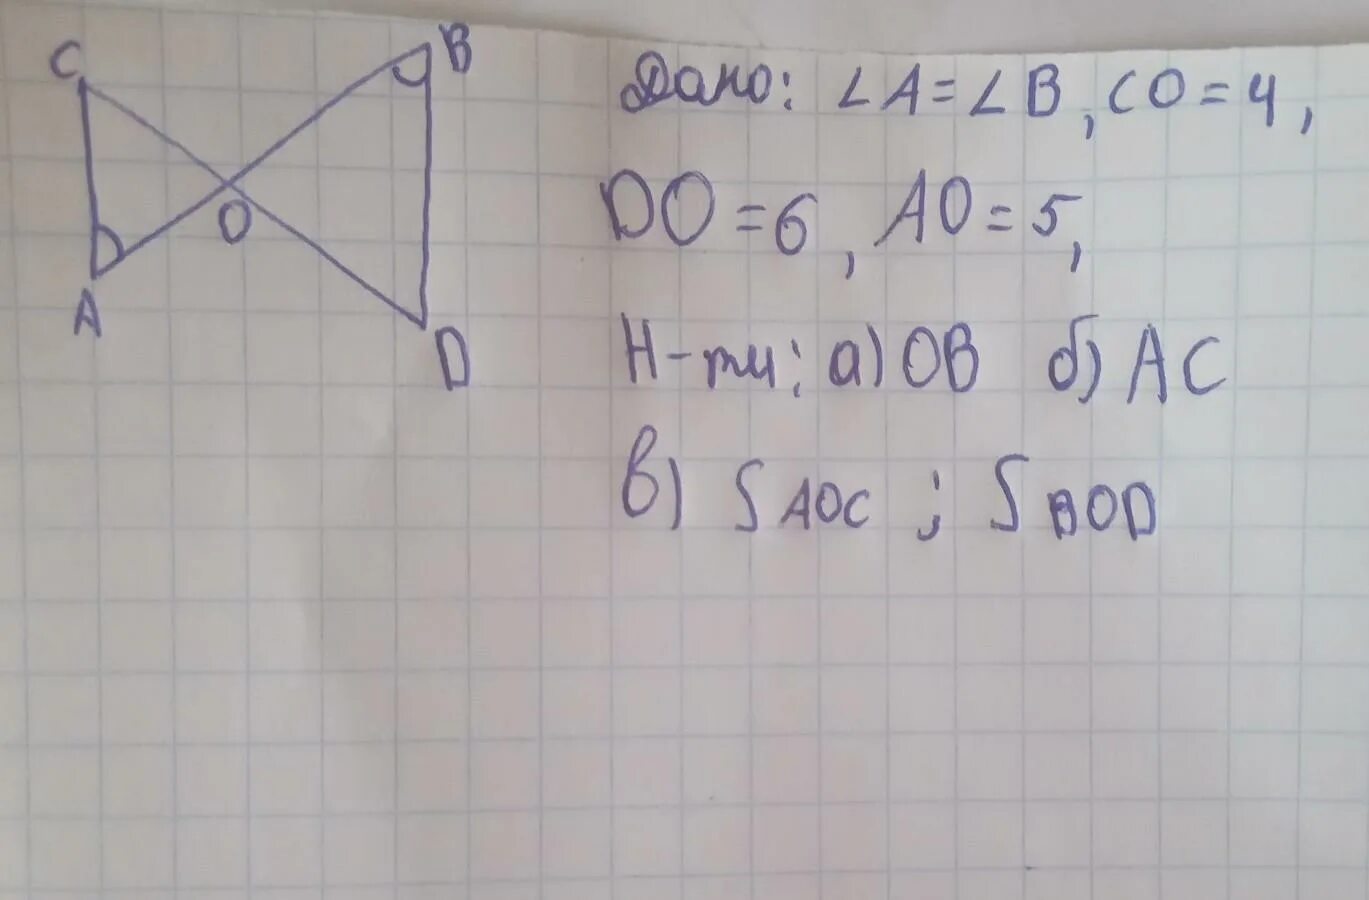 C
B
O
A
D
Дано: ∠A = ∠B, CO = 4,
DO = 6, AO = 5,
Н-ти: а) OB б) AC
в) S AOC ; S BOD